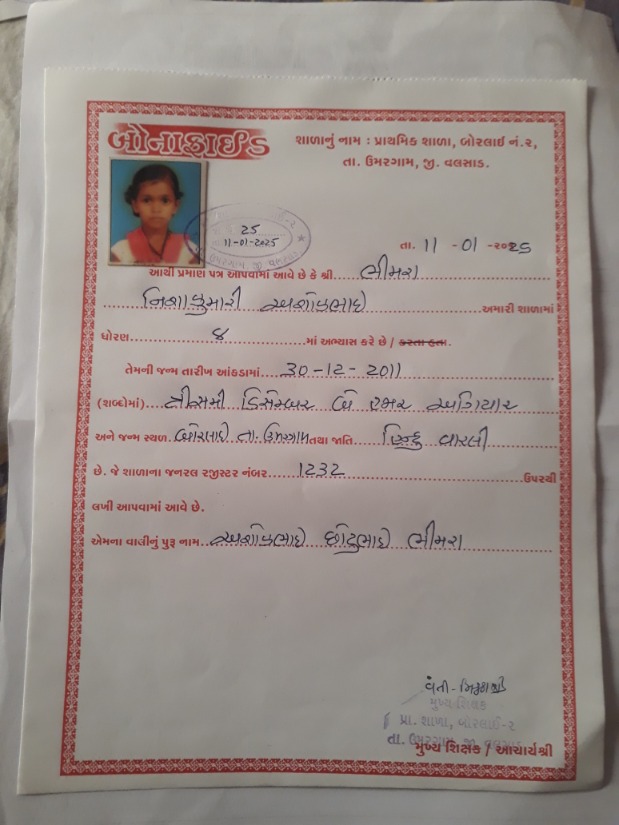 બોનાફાઈડ
શાળાનું નામ : પ્રાથમિક શાળા, બોરલાઈ નં.૨,
તા. ઉમરગામ, જી. વલસાડ.
25
11-01-2025
તા. 11 -01 -૨૦25
આથી પ્રમાણ પત્ર આપવામાં આવે છે કે શ્રી ભીમરા
નિશાકુમારી અશોકભાઇ અમારી શાળામાં
ધોરણ ૪ માં અભ્યાસ કરે છે / કરતા હતા.
તેમની જન્મ તારીખ આંકડામાં 30-12-2011
(શબ્દોમાં) ત્રીસમી ડિસેમ્બર બે હજાર અગિયાર
અને જન્મ સ્થળ બોરલાઇ તા. ઉમરગામ તથા જાતિ હિન્દુ વારલી
છે. જે શાળાના જનરલ રજીસ્ટર નંબર 1232 ઉપરથી
લખી આપવામાં આવે છે.
એમના વાલીનું પુરૂ નામ અશોકભાઇ છોટુભાઇ ભીમરા
વતી-
મુખ્ય શિક્ષક
પ્રા. શાળા, બોરલાઈ-૨
તા. ઉમરગામ જી. વલસાડ
મુખ્ય શિક્ષક / આચાર્યશ્રી